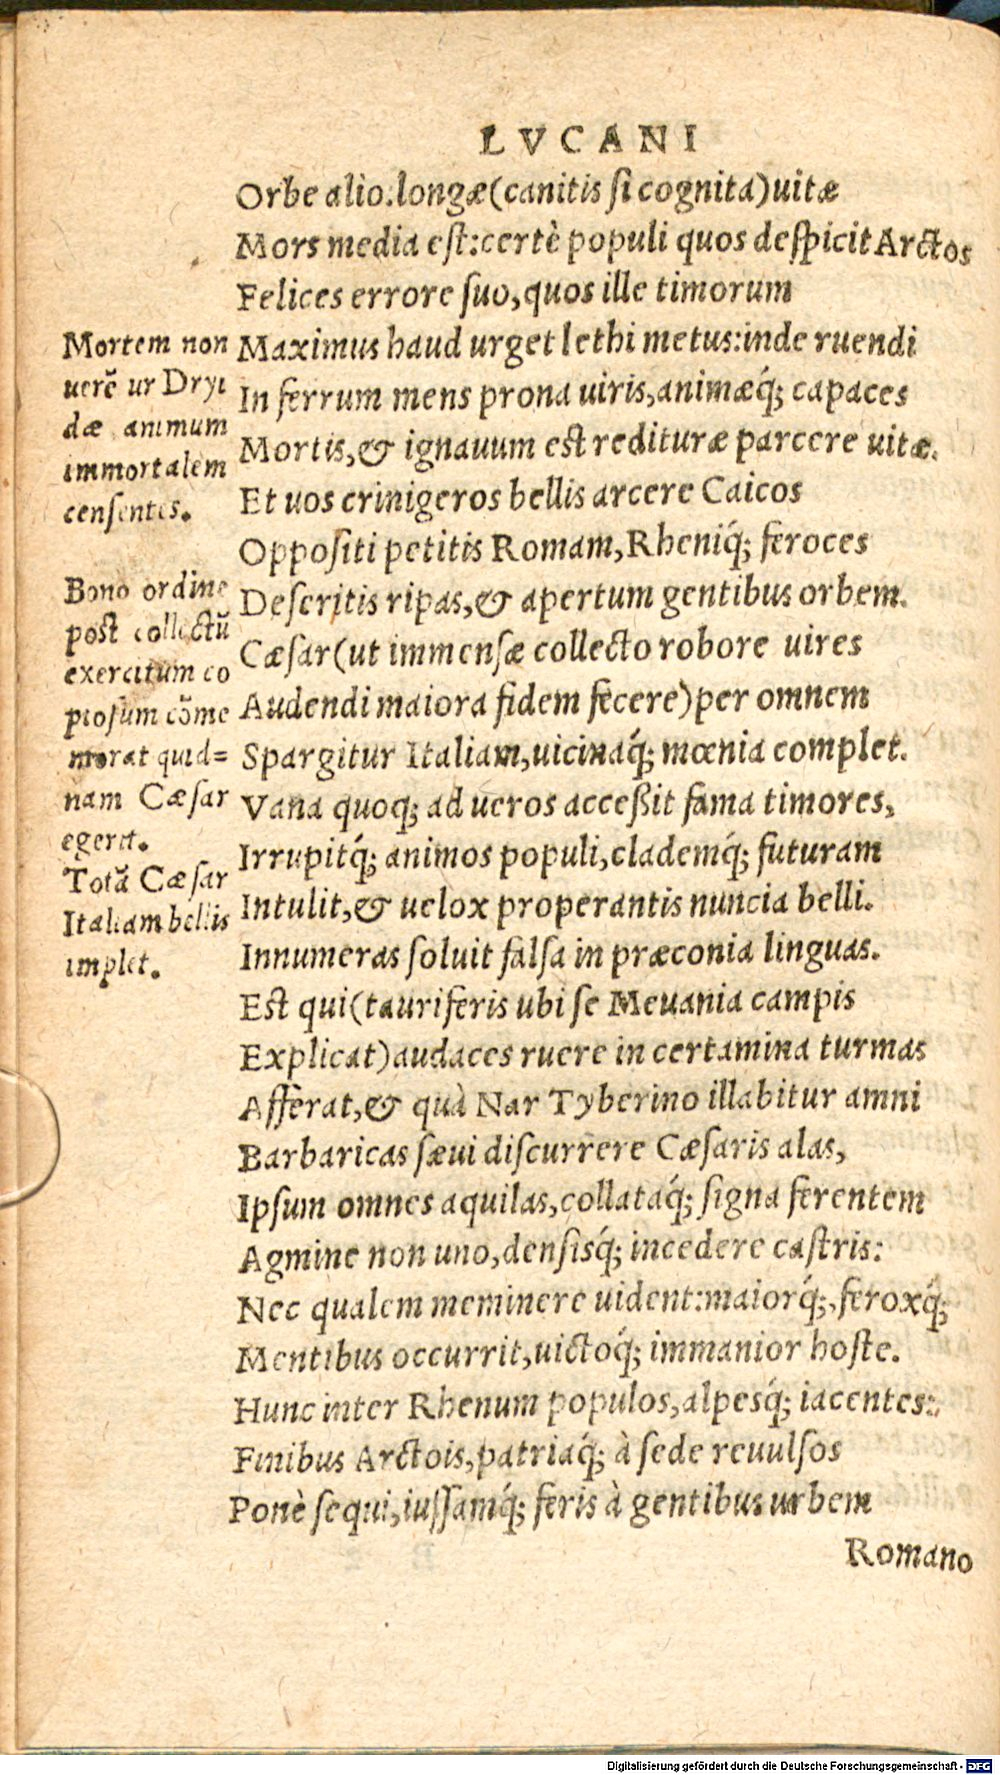 LVCANI
Orbe alio.longæ(canitis ſi cognita)uitæ
Mors media eſt:certè populi quos deſpicit Arctos
Felices errore ſuo,quos ille timorum
Maximus haud urget lethi metus:inde ruendi
In ferrum mens prona uiris,animæq́; capaces
Mortis,& ignauum eſt redituræ parcere uitæ.
Et uos crinigeros bellis arcere Caicos
Oppoſiti petitis Romam,Rheniq́; feroces
Deſeritis ripas,& apertum gentibus orbem.
Cæſar(ut immenſæ collecto robore uires
Audendi maiora fidem fecere)per omnem
Spargitur Italiam,uicinaq́; mœnia complet.
Vana quoq; ad ueros acceßit fama timores,
Irrupitq́; animos populi,clademq́; futuram
Intulit,& uelox properantis nuncia belli.
Innumeras ſoluit falſa in præconia linguas.
Eſt qui(tauriferis ubi ſe Meuania campis
Explicat)audaces ruere in certamina turmas
Afferat,& quà Nar Tyberino illabitur amni
Barbaricas ſæui diſcurrere Cæſaris alas,
Ipſum omnes aquilas,collataq́; ſigna ferentem
Agmine non uno,denſisq́; incedere caſtris:
Nec qualem meminere uident:maiorq́;,feroxq́;
Mentibus occurrit,uictoq́; immanior hoſte.
Hunc inter Rhenum populos,alpesq́; iacentes:
Finibus Arctois,patriaq́; à ſede reuulſos
Ponè ſequi,iuſſamq́; feris à gentibus urbem
Romano
Mortem non
uerē ur Dryi
dæ animum
immortalem
cenſentes.
Bono ordine
poſt collectū
exercitum co
pioſum cōme
morat quid=
nam Cæſar
egerit.
Totā Cæſar
Italiam bellis
implet.
Digitalisierung gefördert durch die Deutsche Forschungsgemeinschaft - DFG